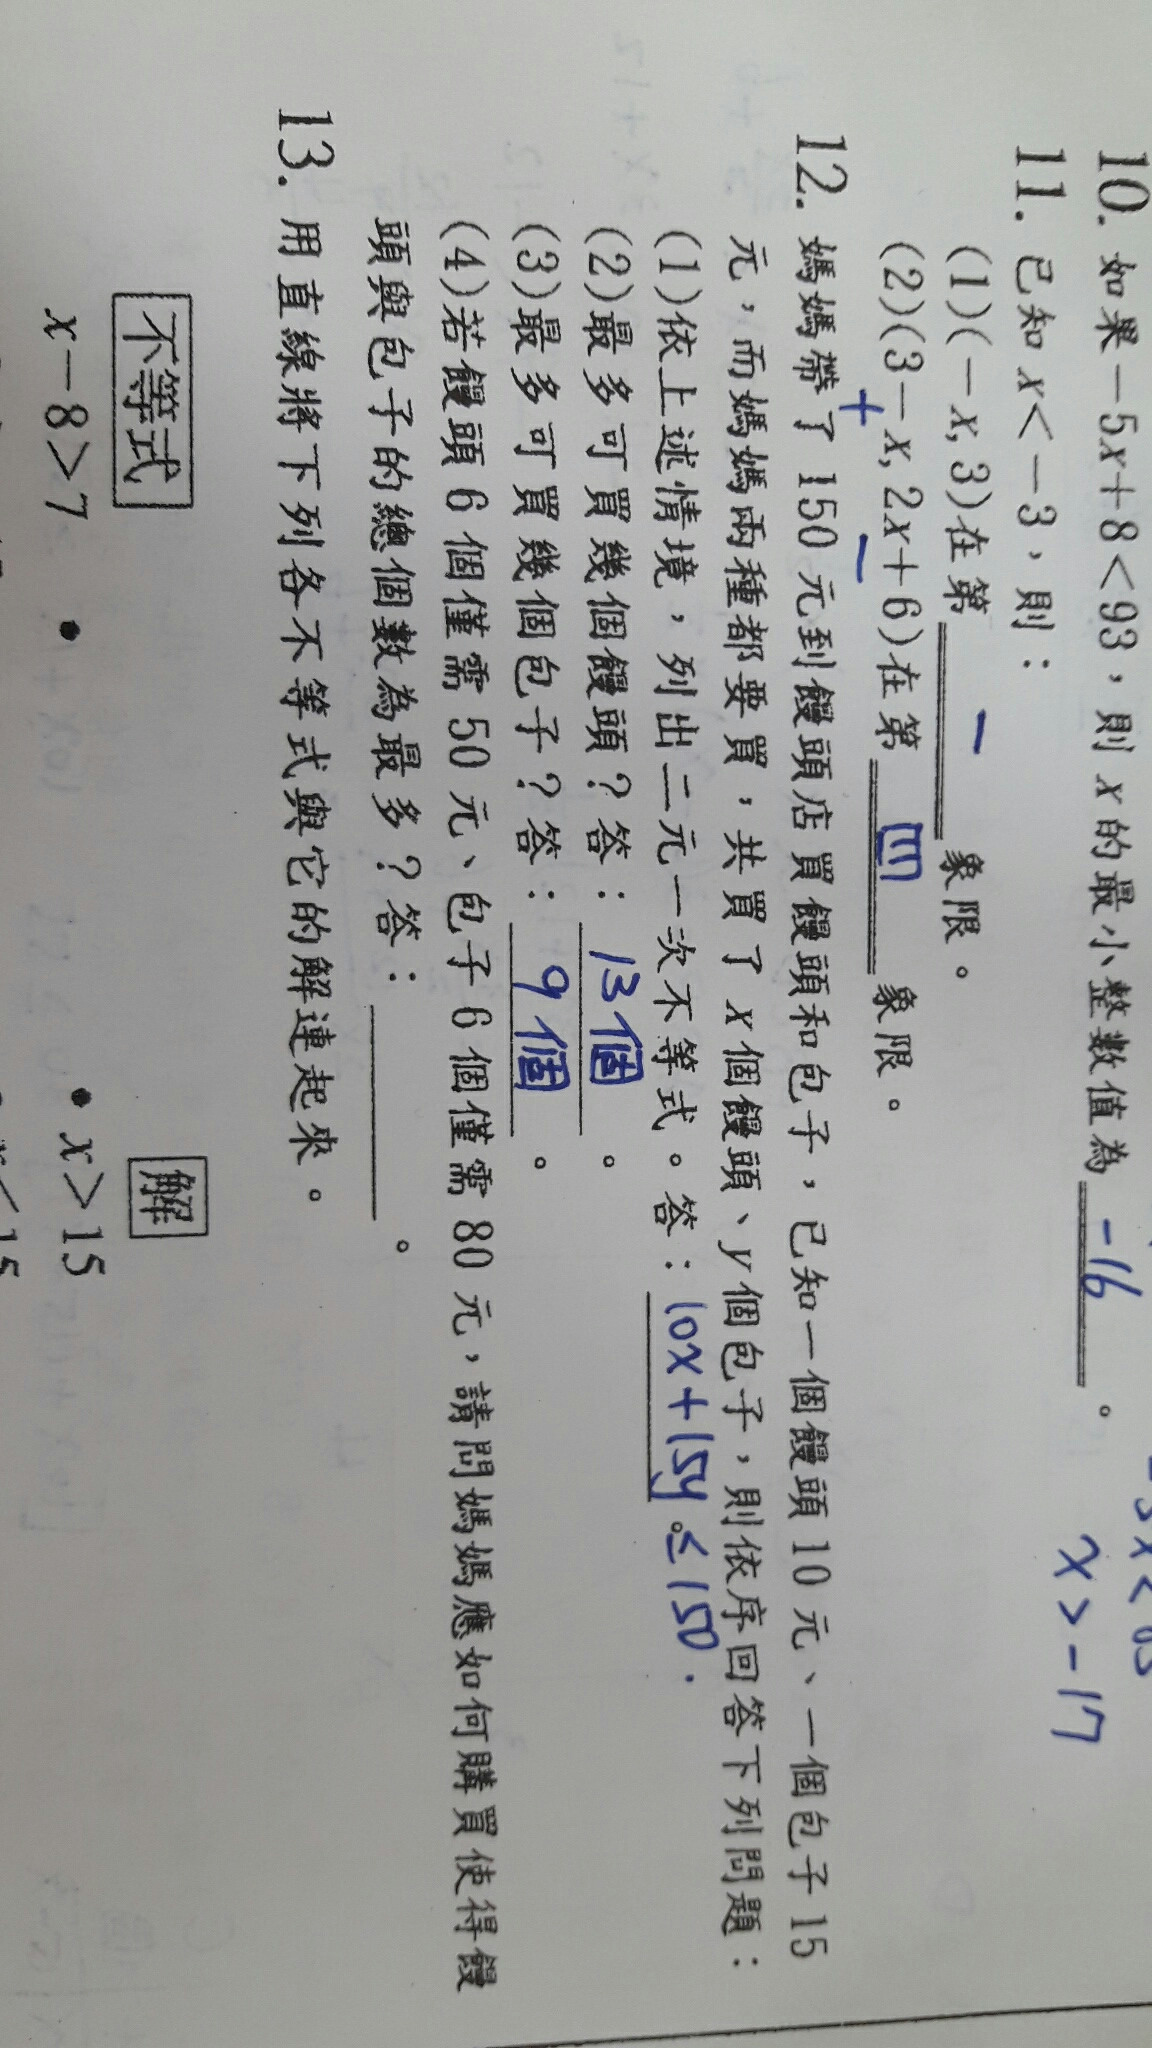 10. 如果－5x＋8＜93，則 x 的最小整數值為 -16 。
x > -17
11. 已知 x＜－3，則：
(1)(－x, 3)在第 一 象限。
(2)(3－x, 2x＋6)在第 四 象限。
+ −
12. 媽媽帶了 150 元到饅頭店買饅頭和包子，已知一個饅頭 10 元、一個包子 15
元，而媽媽兩種都要買，共買了 x 個饅頭、y 個包子，則依序回答下列問題：
(1)依上述情境，列出二元一次不等式。答：10x+15y ≤ 150 。
(2)最多可買幾個饅頭？答：13個。
(3)最多可買幾個包子？答：9個。
(4)若饅頭 6 個僅需 50 元、包子 6 個僅需 80 元，請問媽媽應如何購買使得饅
頭與包子的總個數為最多？答： 。
13. 用直線將下列各不等式與它的解連起來。
不等式 解
x－8＞7 • • x＞15